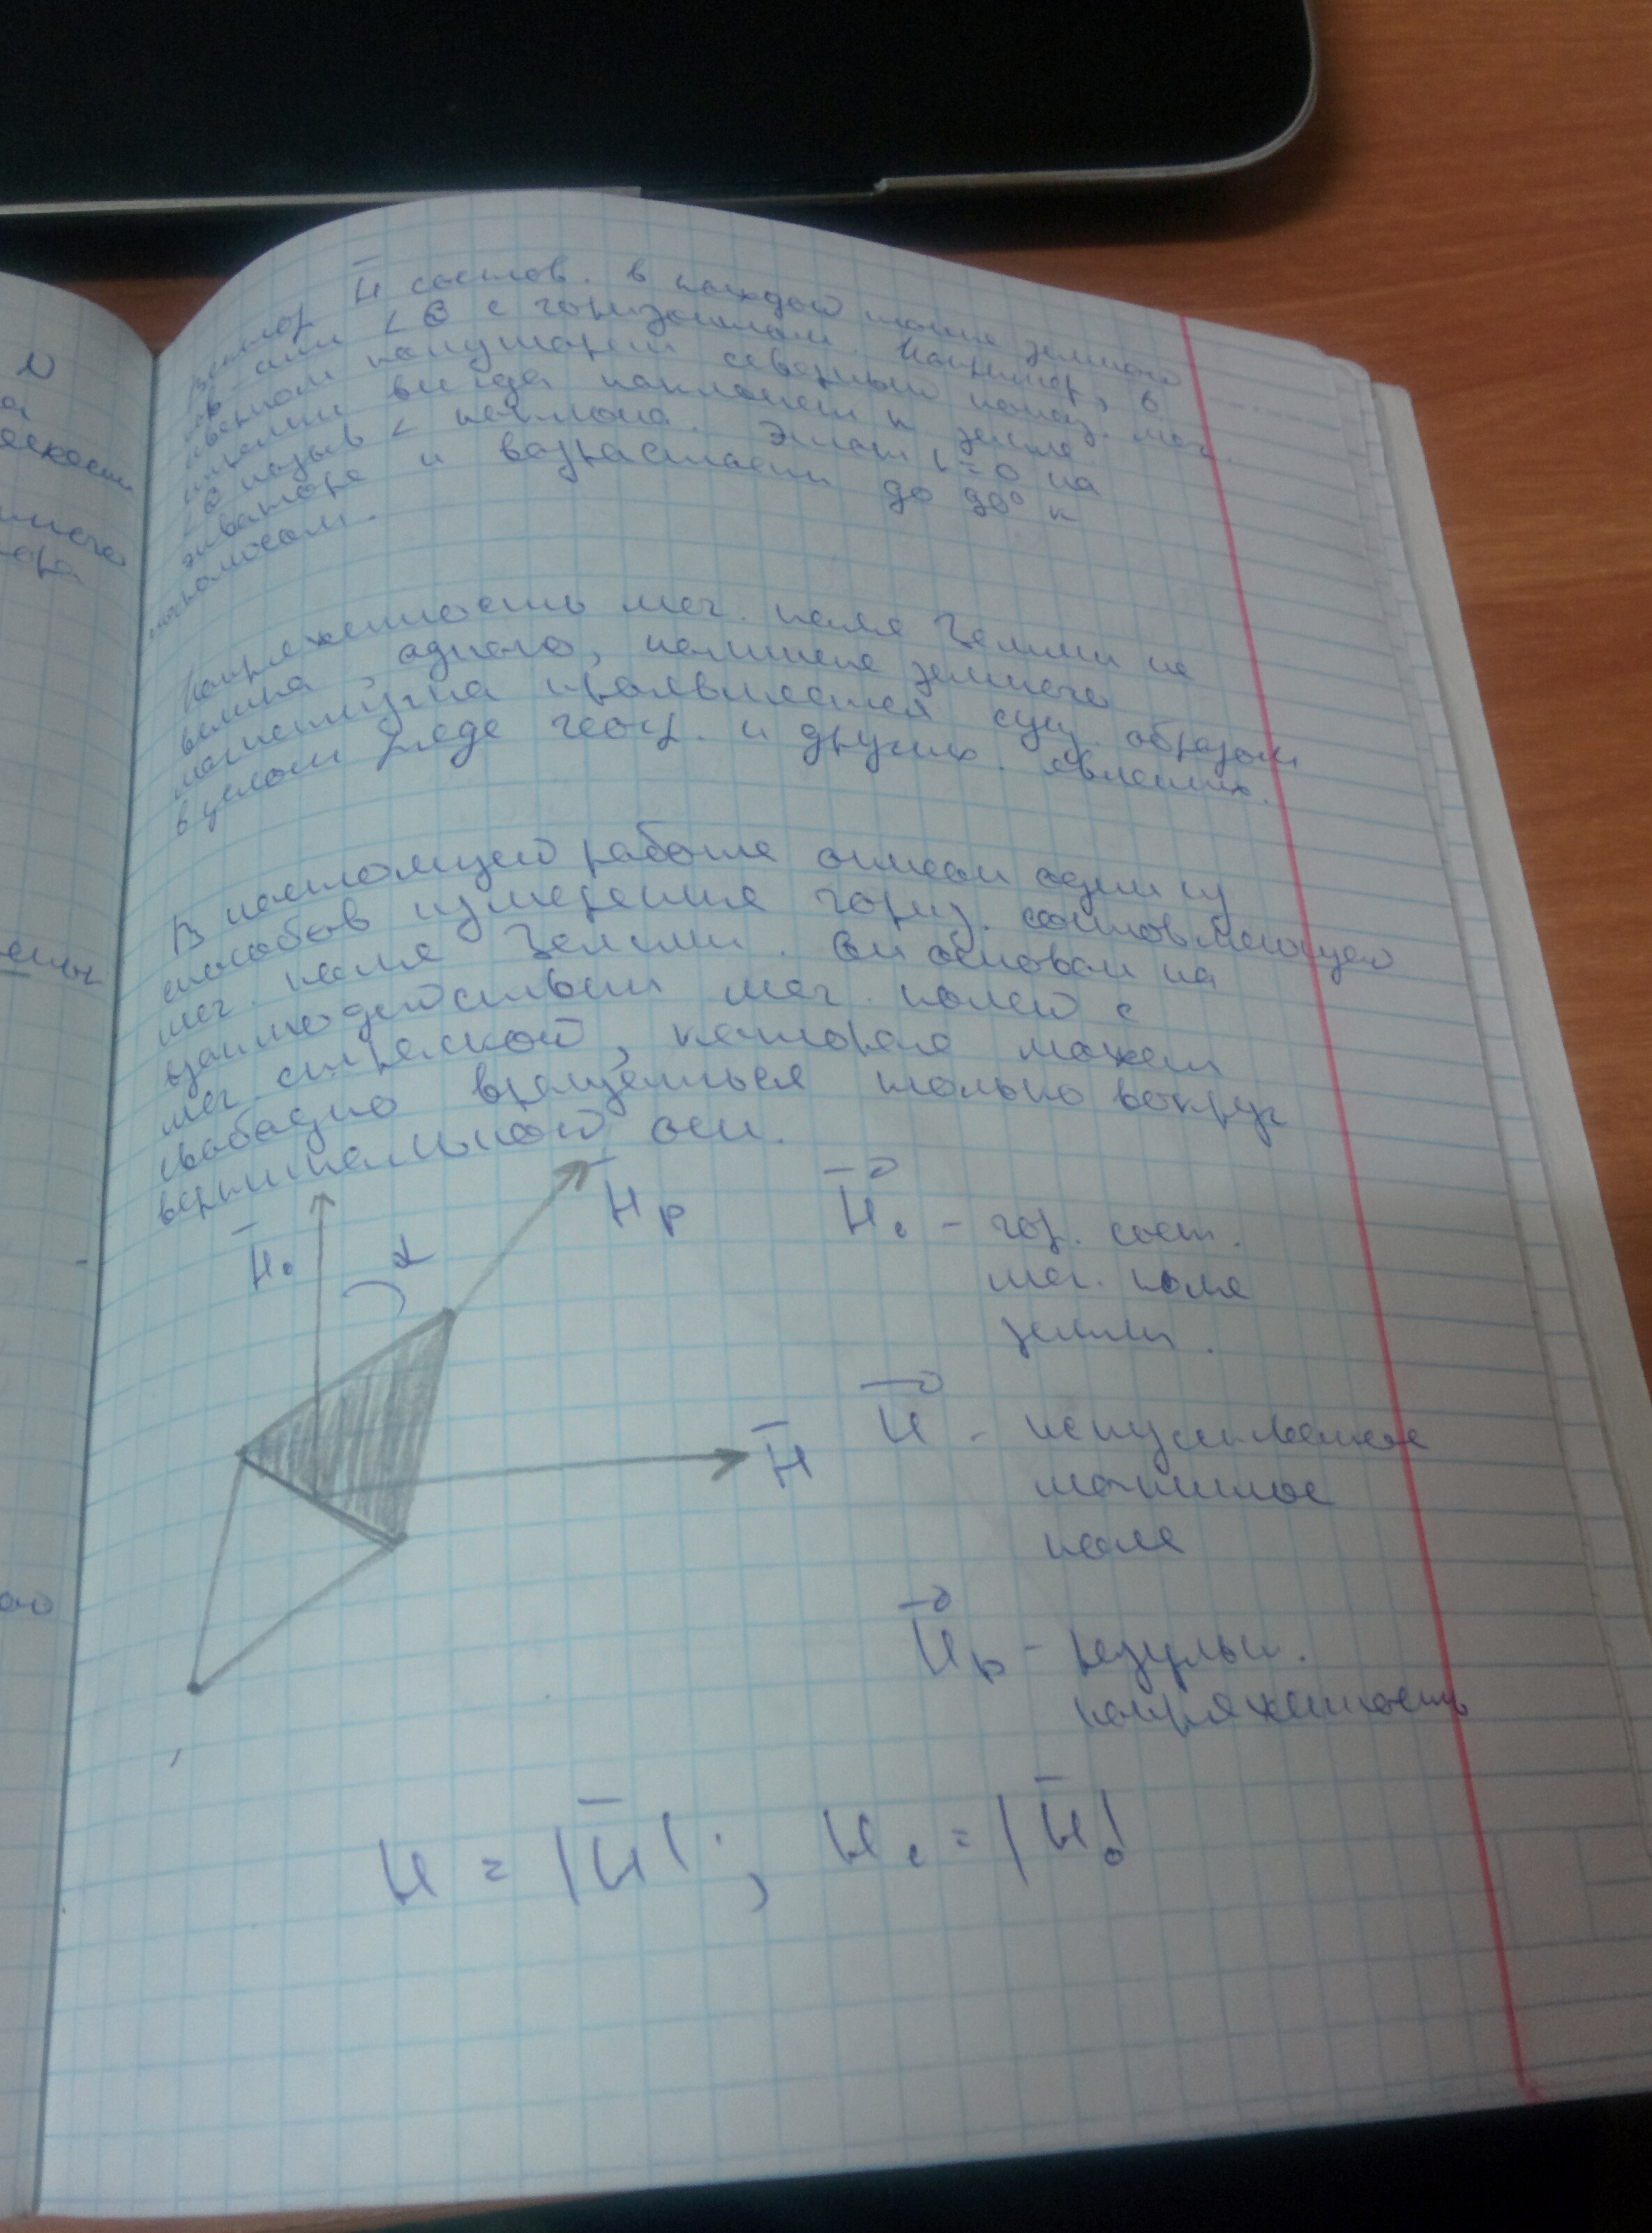 Вектор H̅ состав. в каждой точке земного
пов-сти <Θ с горизонтом. Например, в
северном полушарии северный конец маг.
стрелки всегда наклонен к земле.
<Θ назыв < наклона. Этот L=0 на
экваторе и возрастает до 90° к
полюсам.
Напряженность маг. поля Земли не
велика, однако, наличие земного
магнетизма проявляется сущ. образом
в целом ряде геогр. и других явлениях.
В настоящей работе описан один из
способов измерения гориз. составляющей
маг. поля Земли. Он основан на
взаимодействии маг. полей с
маг. стрелкой, которая может
свободно вращаться только вокруг
вертикальной оси.
H̅₀ α H̅р
H⃗₀ - гор. сост.
маг. поля
земли.
H̅
H⃗ - искусственное
магнитное
поле
H⃗р - результ.
напряженность
H = |H̅|; H₀ = |H̅₀|